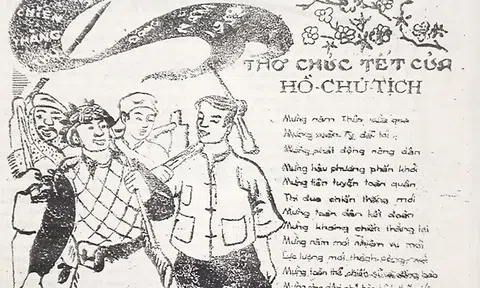 CHIẾN
THẮNG
THƠ CHÚC TẾT CỦA
HỒ-CHỦ-TỊCH
Mừng năm Thìn vừa qua
Mừng xuân Tỵ đã tới
Mừng phát động nông dân
Mừng hậu phương phấn khởi
Mừng tiền tuyến toàn quân
Thi đua chiến thắng mới
Mừng toàn dân kết đoàn
Mừng kháng chiến thắng lợi
Mừng năm mới nhiệm vụ mới
Lực lượng mới
Mừng toàn thể chiến sĩ và đồng bào
Mừng